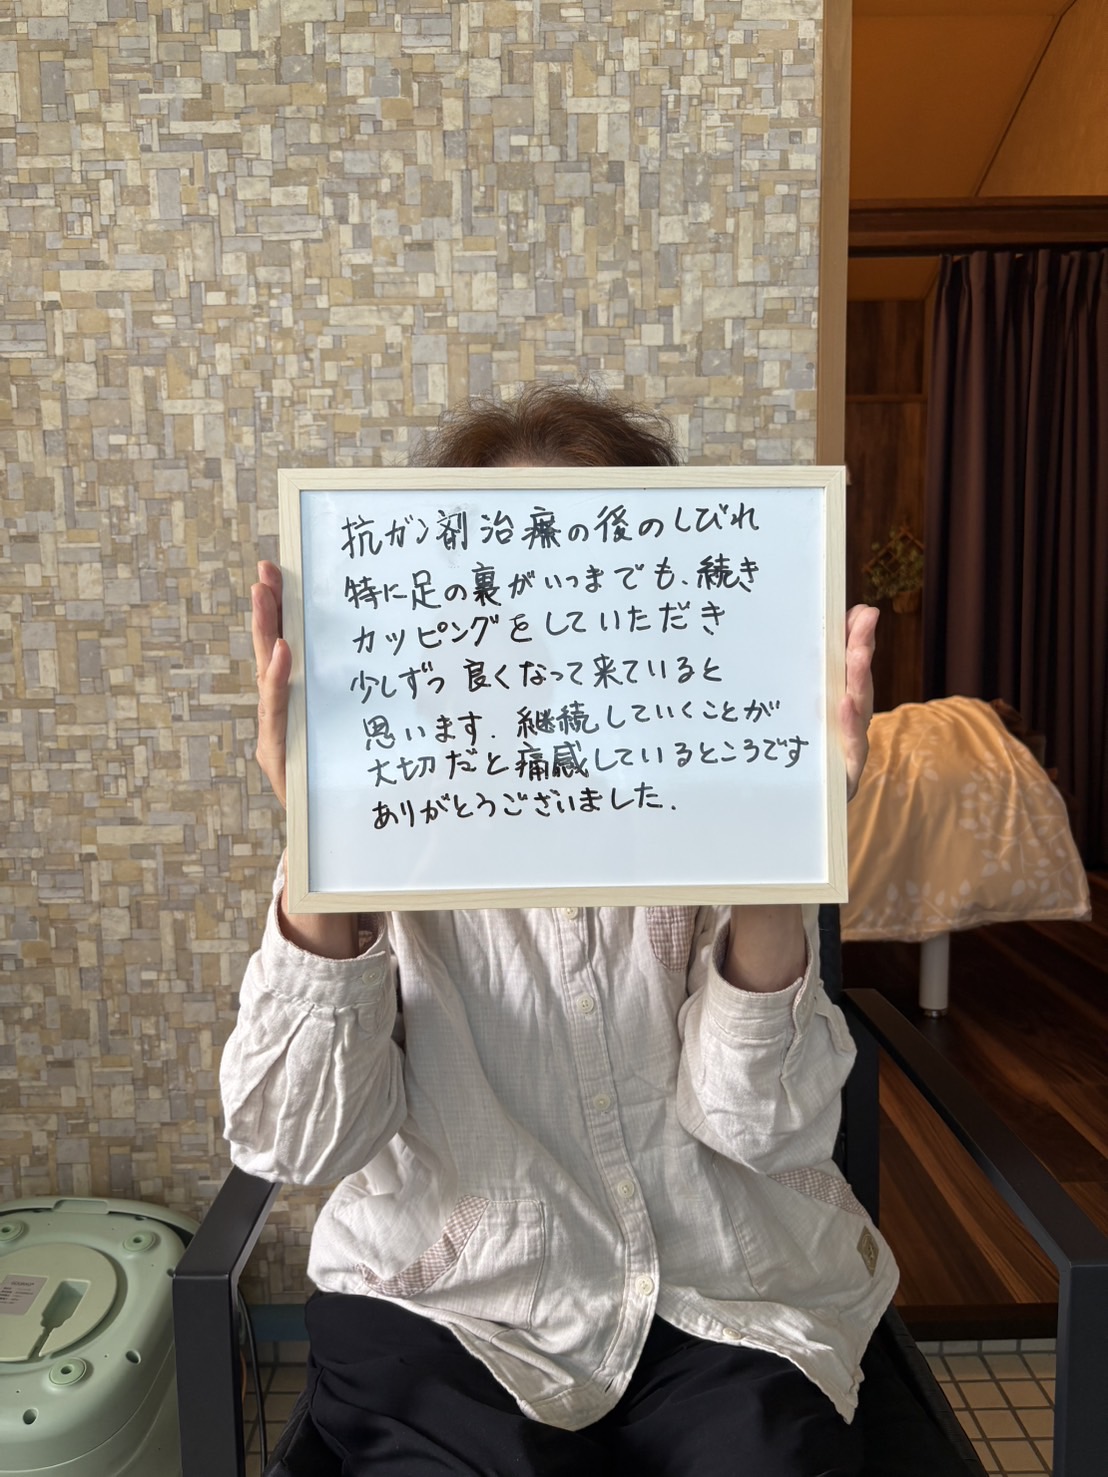 抗ガン剤治療の後のしびれ
特に足の裏がいつまでも、続き
カッピングをしていただき
少しずつ良くなって来ていると
思います. 継続していくことが
大切だと痛感しているところです
ありがとうございました.